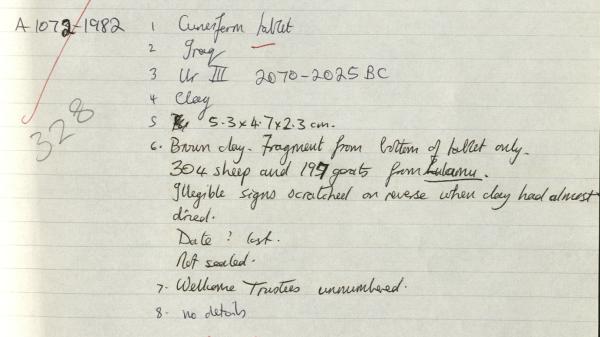 A 1072-1982 1 Cuneiform tablet
2 Iraq
3 Ur III 2070-2025 BC
328
4 Clay
5 5.3 x 4.7 x 2.3 cm.
6. Brown clay. Fragment from bottom of tablet only.
304 sheep and 197 goats from Lulamu.
Illegible signs scratched on reverse when clay had almost
dried.
Date? lost.
Not sealed.
7. Wellcome Trustees unnumbered.
8. no details